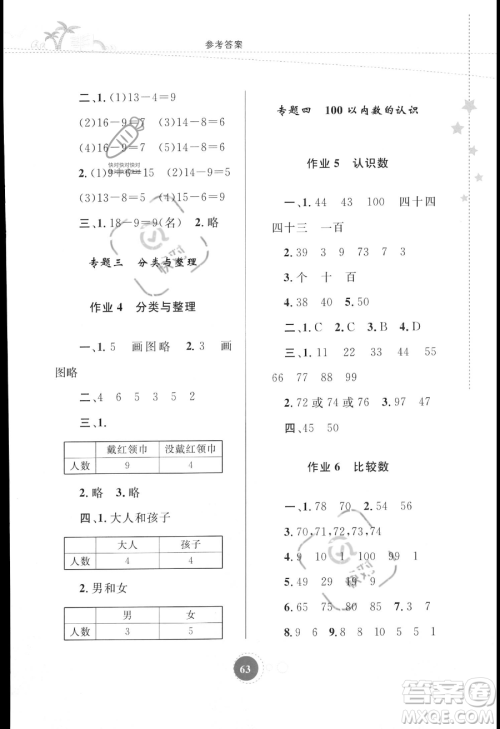 参考答案
二、1.(1)13－4＝9
(2)16－9＝7 (3)14－8＝6
(4)11－6＝5
2.(1)9＋6＝15 (2)15－8＝7
(3)14－8＝6 (4)14－9＝5
三、1.18－9＝9(名) 2.略
专题三 分类与整理
作业 4 分类与整理
一、1.5 画图略 2.3 画
图略
二、4 6 5 3 5 2
三、1.
戴红领巾 没戴红领巾
人数 9 4
2.略 3.略
四、1.大人和孩子
大人 孩子
人数 4 4
2.男和女
男 女
人数 3 5
专题四 100 以内数的认识
作业 5 认识数
一、1.44 43 100 四十四
四十三 一百
2.39 40 50 51 52
3.个 十 百
4.38 40 5.50
二、1.C 2.C 3.D
三、1.11 22 33 44 55
66 77 88 99
2.72或74或76 3.97 47
四、45 50
作业 6 比较数
一、1.78 70 2.54 56
3.70,71,72,73
4.9 10 1 100 99 1
5.49 29 19 9
6.65 75 80 85
7.6 8.9 9.6
63
快对快对快对
答案圈
MXQE.COM